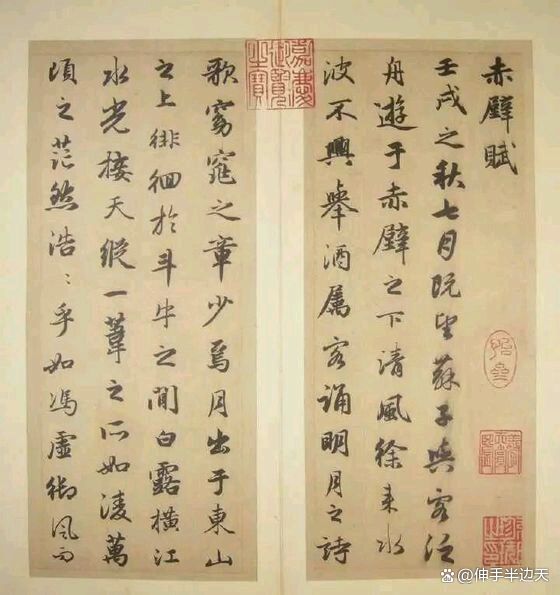 赤壁賦
壬戌之秋七月既望蘇子與客泛
舟遊于赤壁之下清風徐来水
波不興舉酒属客誦明月之詩
嘉慶御覽之寶
歌窈窕之章少焉月出于東山
之上徘徊於斗牛之間白露橫江
水光接天縱一葦之所如凌萬
頃之茫然浩〻乎如馮虛御風而
@伸手半边天